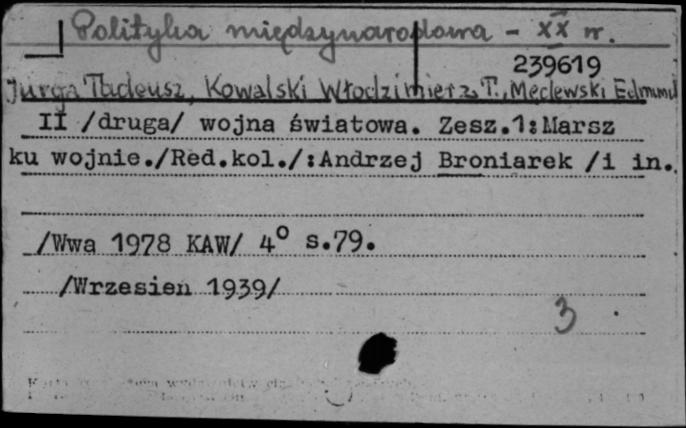 Polityka międzynarodowa - XX w.
239619
Jurga Tadeusz, Kowalski Włodzimierz T., Męclewski Edmund
II /druga/ wojna światowa. Zesz.1:Marsz
ku wojnie./Red.kol./:Andrzej Broniarek /i in.
/Wwa 1978 KAW/ 4° s.79.
/Wrzesień 1939/
3